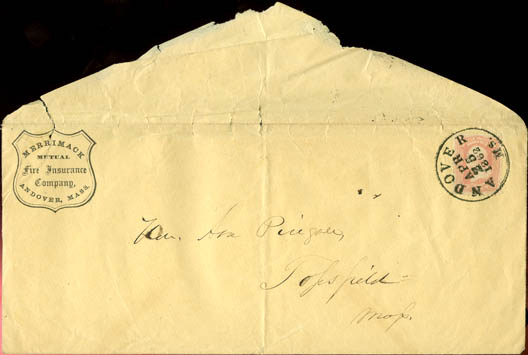 MERRIMACK
MUTUAL
Fire Insurance
Company,
ANDOVER, MASS.
ANDOVER Ms.
APR
Asa Pingree,
Topsfield
Mass.